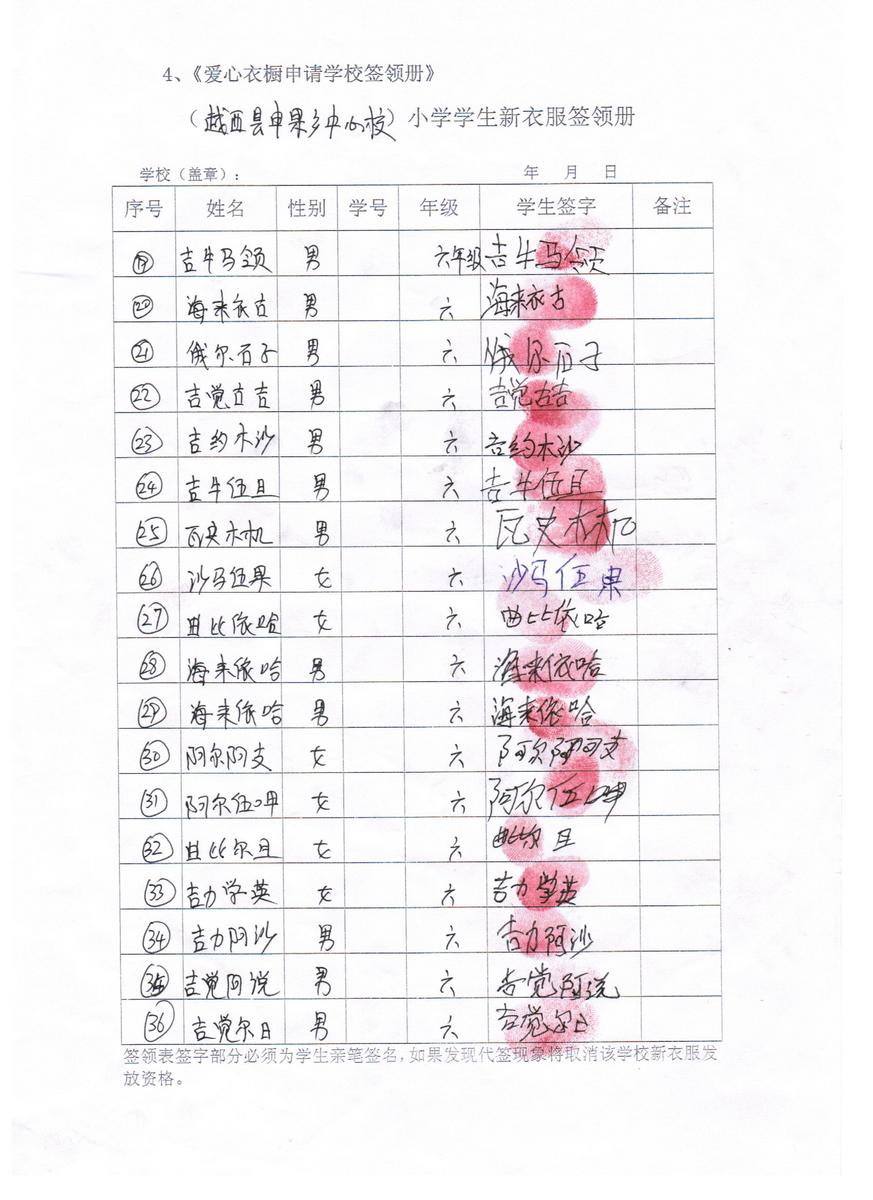 4、《爱心衣橱申请学校签领册》
（越西县申果乡中心校）小学学生新衣服签领册
学校（盖章）： 年 月 日
序号 姓名 性别 学号 年级 学生签字 备注
⑲ 吉牛马领 男 六年级 吉牛马领
⑳ 海来衣古 男 六 海来衣古
㉑ 俄尔石子 男 六 俄尔石子
㉒ 吉觉古吉 男 六 吉觉古吉
㉓ 吉约木沙 男 六 吉约木沙
㉔ 吉牛伍且 男 六 吉牛伍且
㉕ 瓦史木机 男 六 瓦史木机
㉖ 沙马伍果 女 六 沙马伍果
㉗ 曲比依哈 女 六 曲比依哈
㉘ 海来依哈 男 六 海来依哈
㉙ 海来依哈 男 六 海来依哈
㉚ 阿尔阿支 女 六 阿尔阿支
㉛ 阿尔伍呷 女 六 阿尔伍呷
㉜ 曲比尔且 女 六 曲比尔且
㉝ 吉力学英 女 六 吉力学英
㉞ 吉力阿沙 男 六 吉力阿沙
㉟ 吉觉阿说 男 六 吉觉阿说
㊱ 吉觉尔日 男 六 吉觉尔日
签领表签字部分必须为学生亲笔签名，如果发现代签现象将取消该学校新衣服发
放资格。